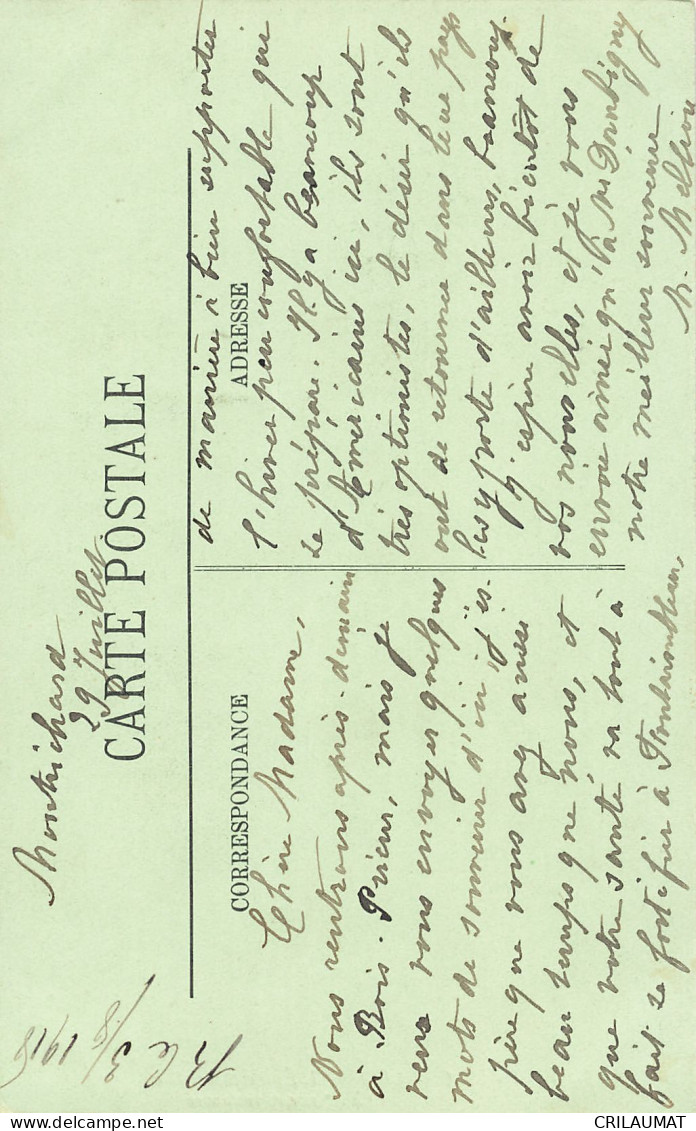 Montrichard
29 Juillet
R le 3/8/1918
CARTE POSTALE
CORRESPONDANCE
ADRESSE
Chère Madame,
Nous rentrons après-demain
à Bois-Prieur, mais je
veux vous envoyer quelques
mots de souvenir d'ici. j'es-
père que vous avez aussi
beau temps que nous, et
que votre santé va tout à
fait se fortifier à Fontainebleau,
de manière à bien supporter
l'hiver peu confortable qui
se prépare. Il y a beaucoup
d'Américains ici, ils sont
très optimistes, le désir qu'ils
ont de retourner dans leur pays
les y porte d'ailleurs, beaucoup
j'espère avoir bientôt de
vos nouvelles, et je vous
envoie ainsi qu'à Mr Daubigny
notre meilleur souvenir
CRILAUMAT